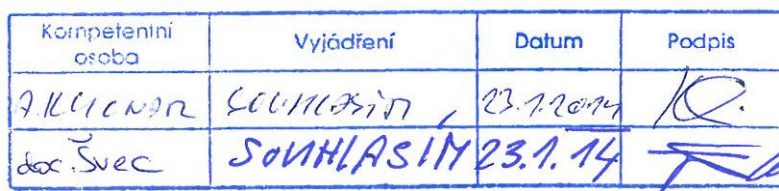 Kompetentní osoba Vyjádření Datum Podpis
SOUHLASÍM, 23.1.2014
doc. Švec SOUHLASIM 23.1.14